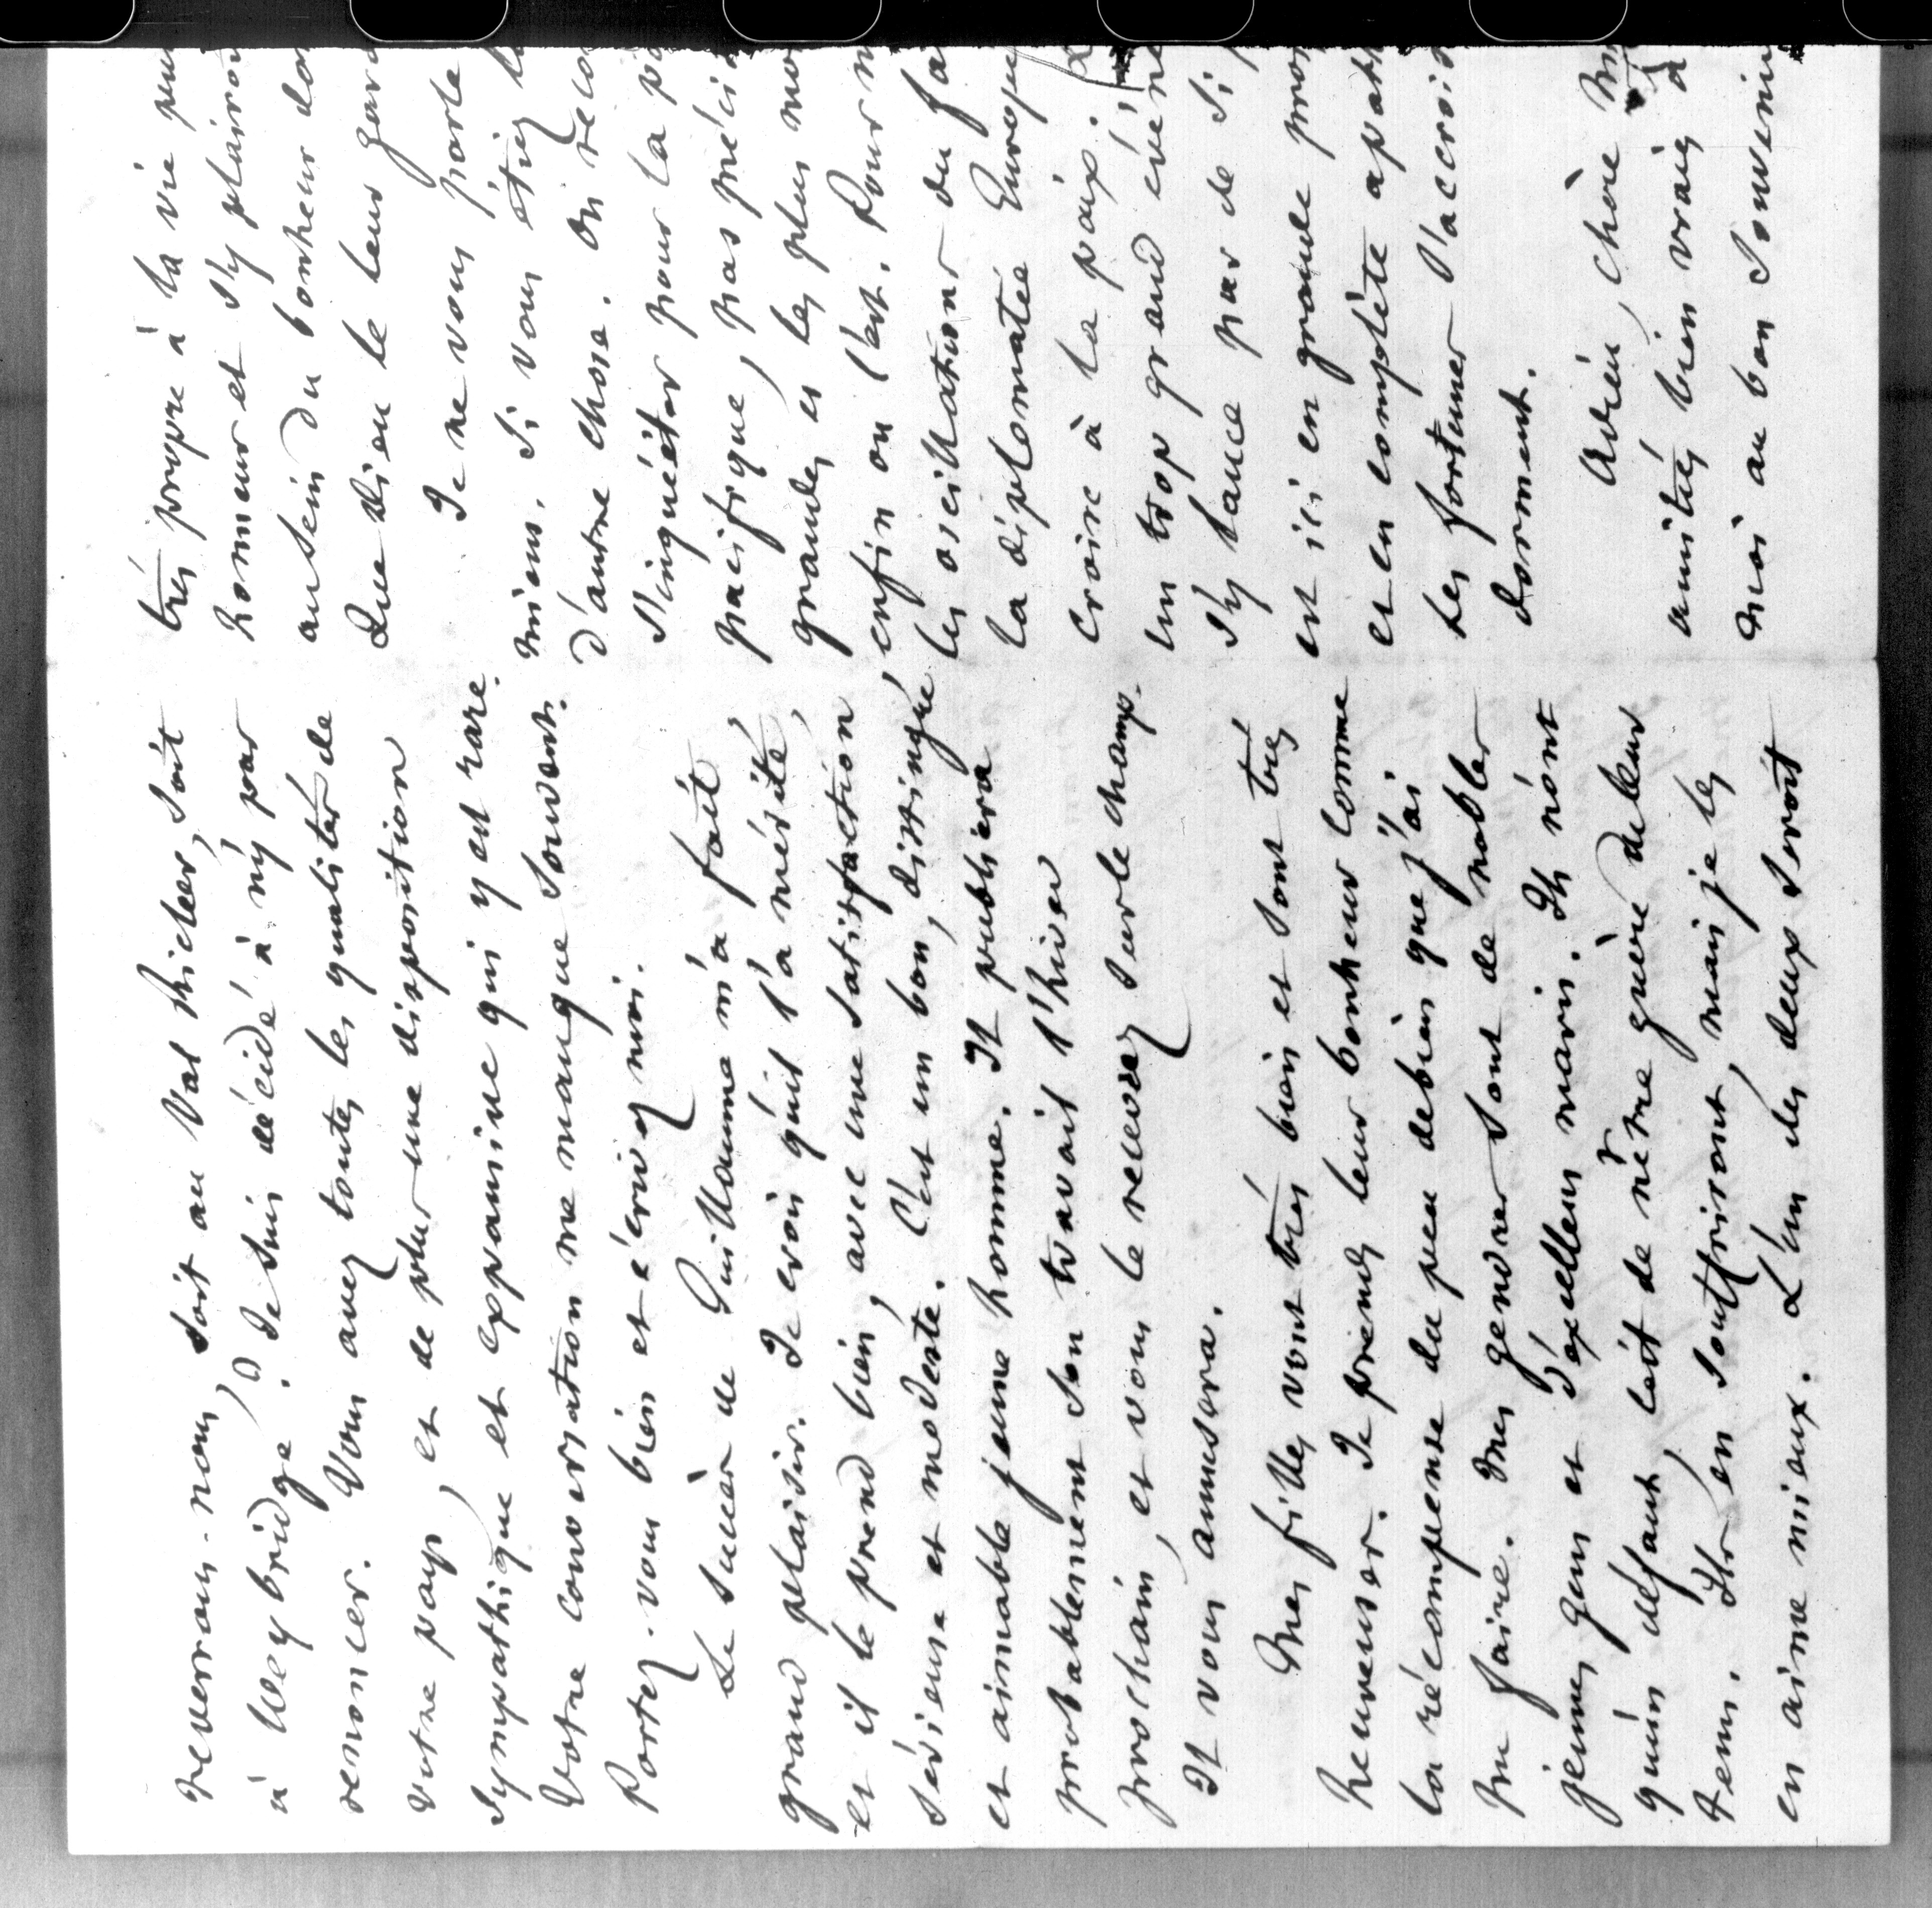 reverrons-nous, soit au Val Richer, soit
à Weybridge? Je suis décidé à n'y pas
renoncer. Vous avez toutes les qualités de
votre pays, et de plus une disposition
sympathique et expansive qui y est rare.
Votre conversation me manque souvent.
Portez-vous bien et écrivez moi.
Le succès de Guillaume m'a fait
grand plaisir. Je crois qu'il l'a mérité,
et il le prend bien, avec une satisfaction
sérieuse et modeste. C'est un bon, distingué
et aimable jeune homme. Il publiera
probablement son travail l'hiver
prochain, et vous le recevrez sur le champ.
Il vous amusera.
Mes filles vont très bien et sont très
heureuses. Je prends leur bonheur comme
la récompense du peu de bien que j'ai
pu faire. Mes gendres sont de nobles
jeunes gens et d'excellens maris. Ils n'ont
qu'un défaut, c'est de n'être guère de leur
tems. Ils en souffriront, mais je les
en aime mieux. L'un des deux seroit
très propre à la vie pu
honneur et s'y plairoi
au sein du bonheur do
Que Dieu le leur gard
Je ne vous parle
miens. Si vous étiez
d'autre chose. On
s'inquiéter pour la
pacifique, pas préci
grandes et les plus
enfin on l'est. Pour
les oscillations du
la diplomatie Europé
croire à la paix.
un trop grand
s'y lance par de si
est ici en grande pros
et en complète apath
Les fortunes s'accrois
dorment.
Adieu, chère
amitiés bien vraies à
moi au bon souvenir